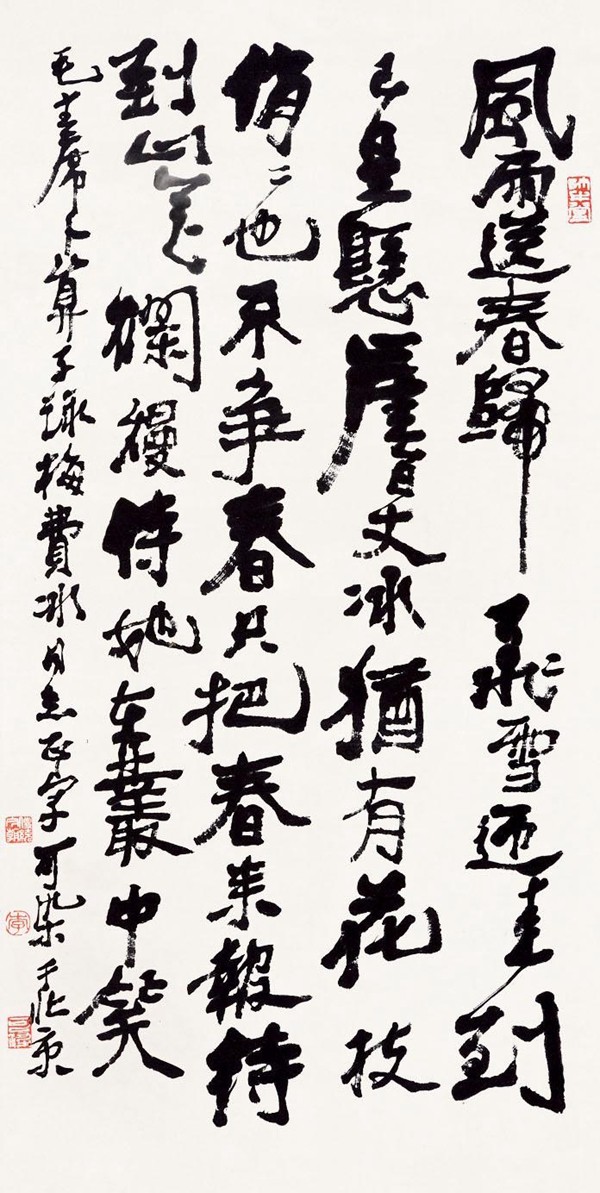 風雨送春歸飛雪迎春到
已是懸崖百丈冰猶有花枝
俏〻也不争春只把春来報待
到山花爛漫待她在叢中笑
毛主席卜算子詠梅費冰同志正字可染于北京